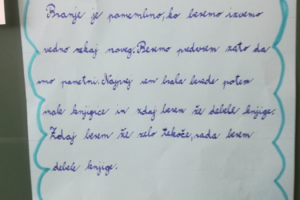 Branje je pomembno, ko beremo izvemo
vedno nekaj novega. Beremo predvsem zato da
smo pametni. Najprej sem brala besede potem
male knjigice in zdaj berem že debele knjige.
Zdaj berem že zelo tekoče, rada berem
debele knjige.